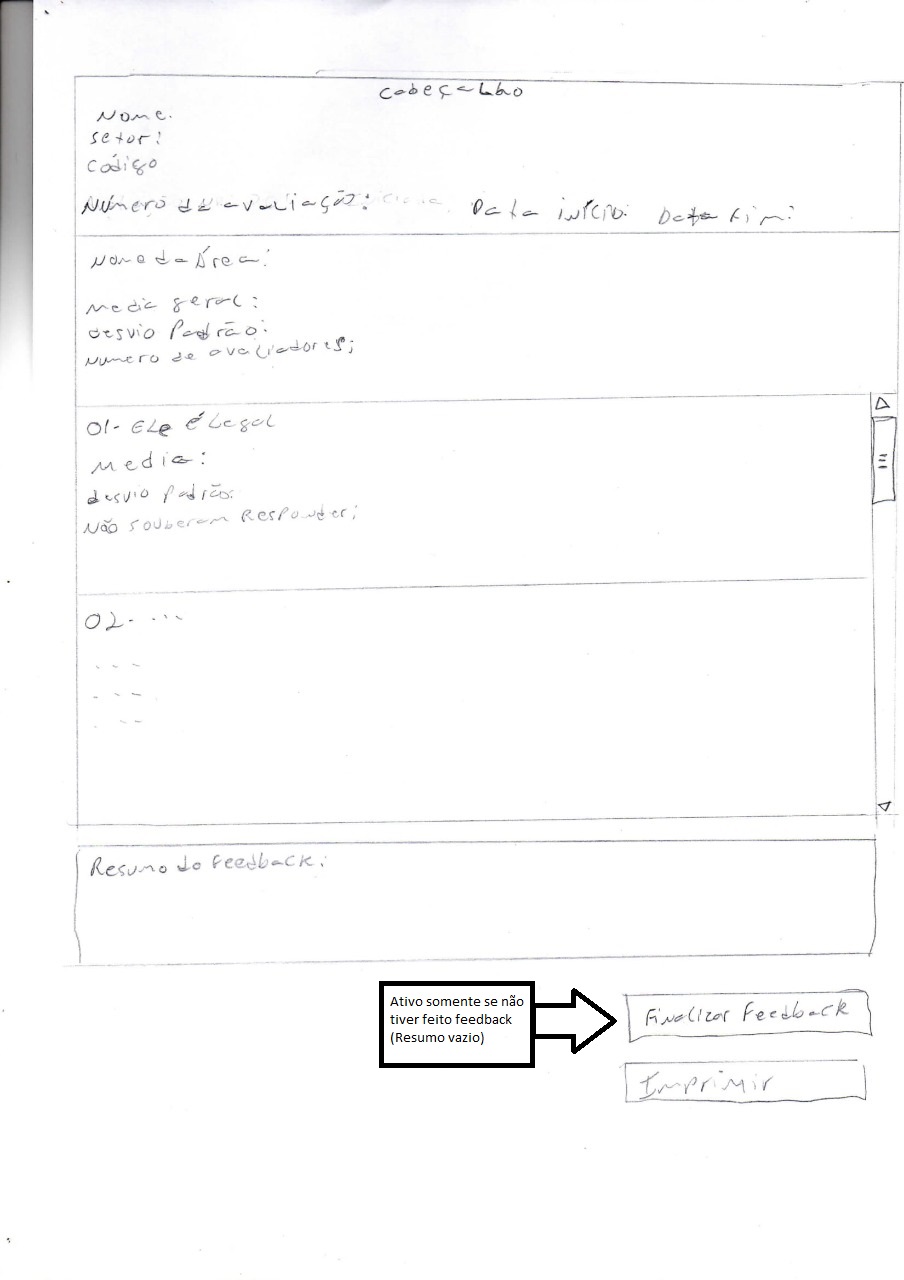 Cabeçalho
Nome.
Setor:
Código
Número de avaliação: Data início: Data fim:
Nome da Área:
Media geral:
desvio Padrão:
Numero de avaliadores:
01- ELe é Legal
Media:
desvio Padrão:
Não souberam Responder:
02- ...
---
---
---
Resumo do Feedback:
Ativo somente se não
tiver feito feedback
(Resumo vazio)
Finalizar Feedback
Imprimir